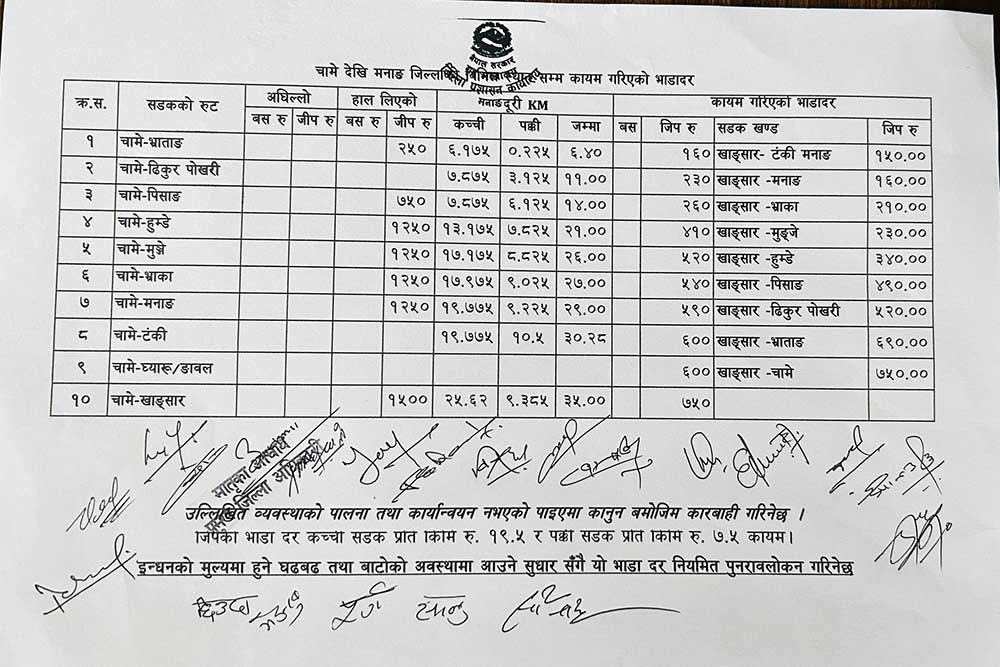 नेपाल सरकार
चामे देखि मनाङ जिल्लाको विभिन्न स्थान सम्म कायम गरिएको भाडादर
क्र.स. सडकको रुट अघिल्लो हाल लिएको मनाङ दूरी KM कायम गरिएको भाडादर
बस रु जीप रु बस रु जीप रु कच्ची पक्की जम्मा बस जिप रु सडक खण्ड जिप रु
१ चामे-भ्राताङ २५० ६.१७५ ०.२२५ ६.४० १६० खाङ्सार- टंकी मनाङ १५०.००
२ चामे-ढिकुर पोखरी ७.८७५ ३.१२५ ११.०० २३० खाङ्सार -मनाङ १६०.००
३ चामे-पिसाङ ७५० ७.८७५ ६.१२५ १४.०० २६० खाङ्सार -भ्राका २१०.००
४ चामे-हुम्डे १२५० १३.१७५ ७.८२५ २१.०० ४१० खाङ्सार -मुङ्जे २३०.००
५ चामे-मुञ्जे १२५० १७.१७५ ८.८२५ २६.०० ५२० खाङ्सार -हुम्डे ३४०.००
६ चामे-भ्राका १२५० १७.९७५ ९.०२५ २७.०० ५४० खाङ्सार -पिसाङ ४९०.००
७ चामे-मनाङ १२५० १९.७७५ ९.२२५ २९.०० ५९० खाङ्सार -ढिकुर पोखरी ५२०.००
८ चामे-टंकी १९.७७५ १०.५ ३०.२८ ६०० खाङ्सार -भ्राताङ ६९०.००
९ चामे-घ्यारू/ङावल ६०० खाङ्सार -चामे ७५०.००
१० चामे-खाङ्सार १५०० २५.६२ ९.३८५ ३५.०० ७५०
प्रमुख जिल्ला अधिकारी
उल्लिखित व्यवस्थाको पालना तथा कार्यान्वयन नभएको पाइएमा कानुन बमोजिम कारबाही गरिनेछ ।
जिपको भाडा दर कच्ची सडक प्रति किमि रु. १९.५ र पक्की सडक प्रति किमि रु. ७.५ कायम।
इन्धनको मुल्यमा हुने घढबढ तथा बाटोको अवस्थामा आउने सुधार सँगै यो भाडा दर नियमित पुनरावलोकन गरिनेछ